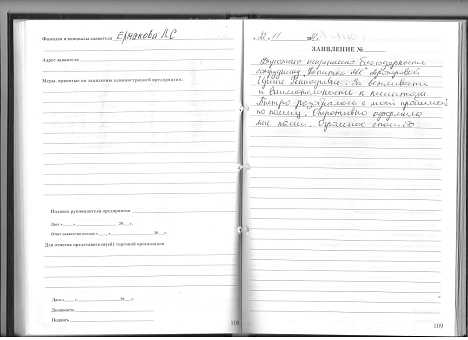 Фамилия и инициалы заявителя Ермакова Л С
Адрес заявителя
Меры, принятые по заявлению администрацией предприятия:
Подпись руководителя предприятия
Дата « » 20 г.
Ответ заявителю послан « » 20 г.
Для отметок представителя(ей) торговой организации
Дата « » 20 г.
Должность
Подпись
108
11
ЗАЯВЛЕНИЕ №
Выражаю искреннюю благодарность
сотруднику "Капитал МС"
Ирине Геннадьевне. За вежливость
и внимательность к клиентам
Быстро разобралась с моей проблемой
по полису. Оперативно оформила
мне полис. Огромное спасибо
109